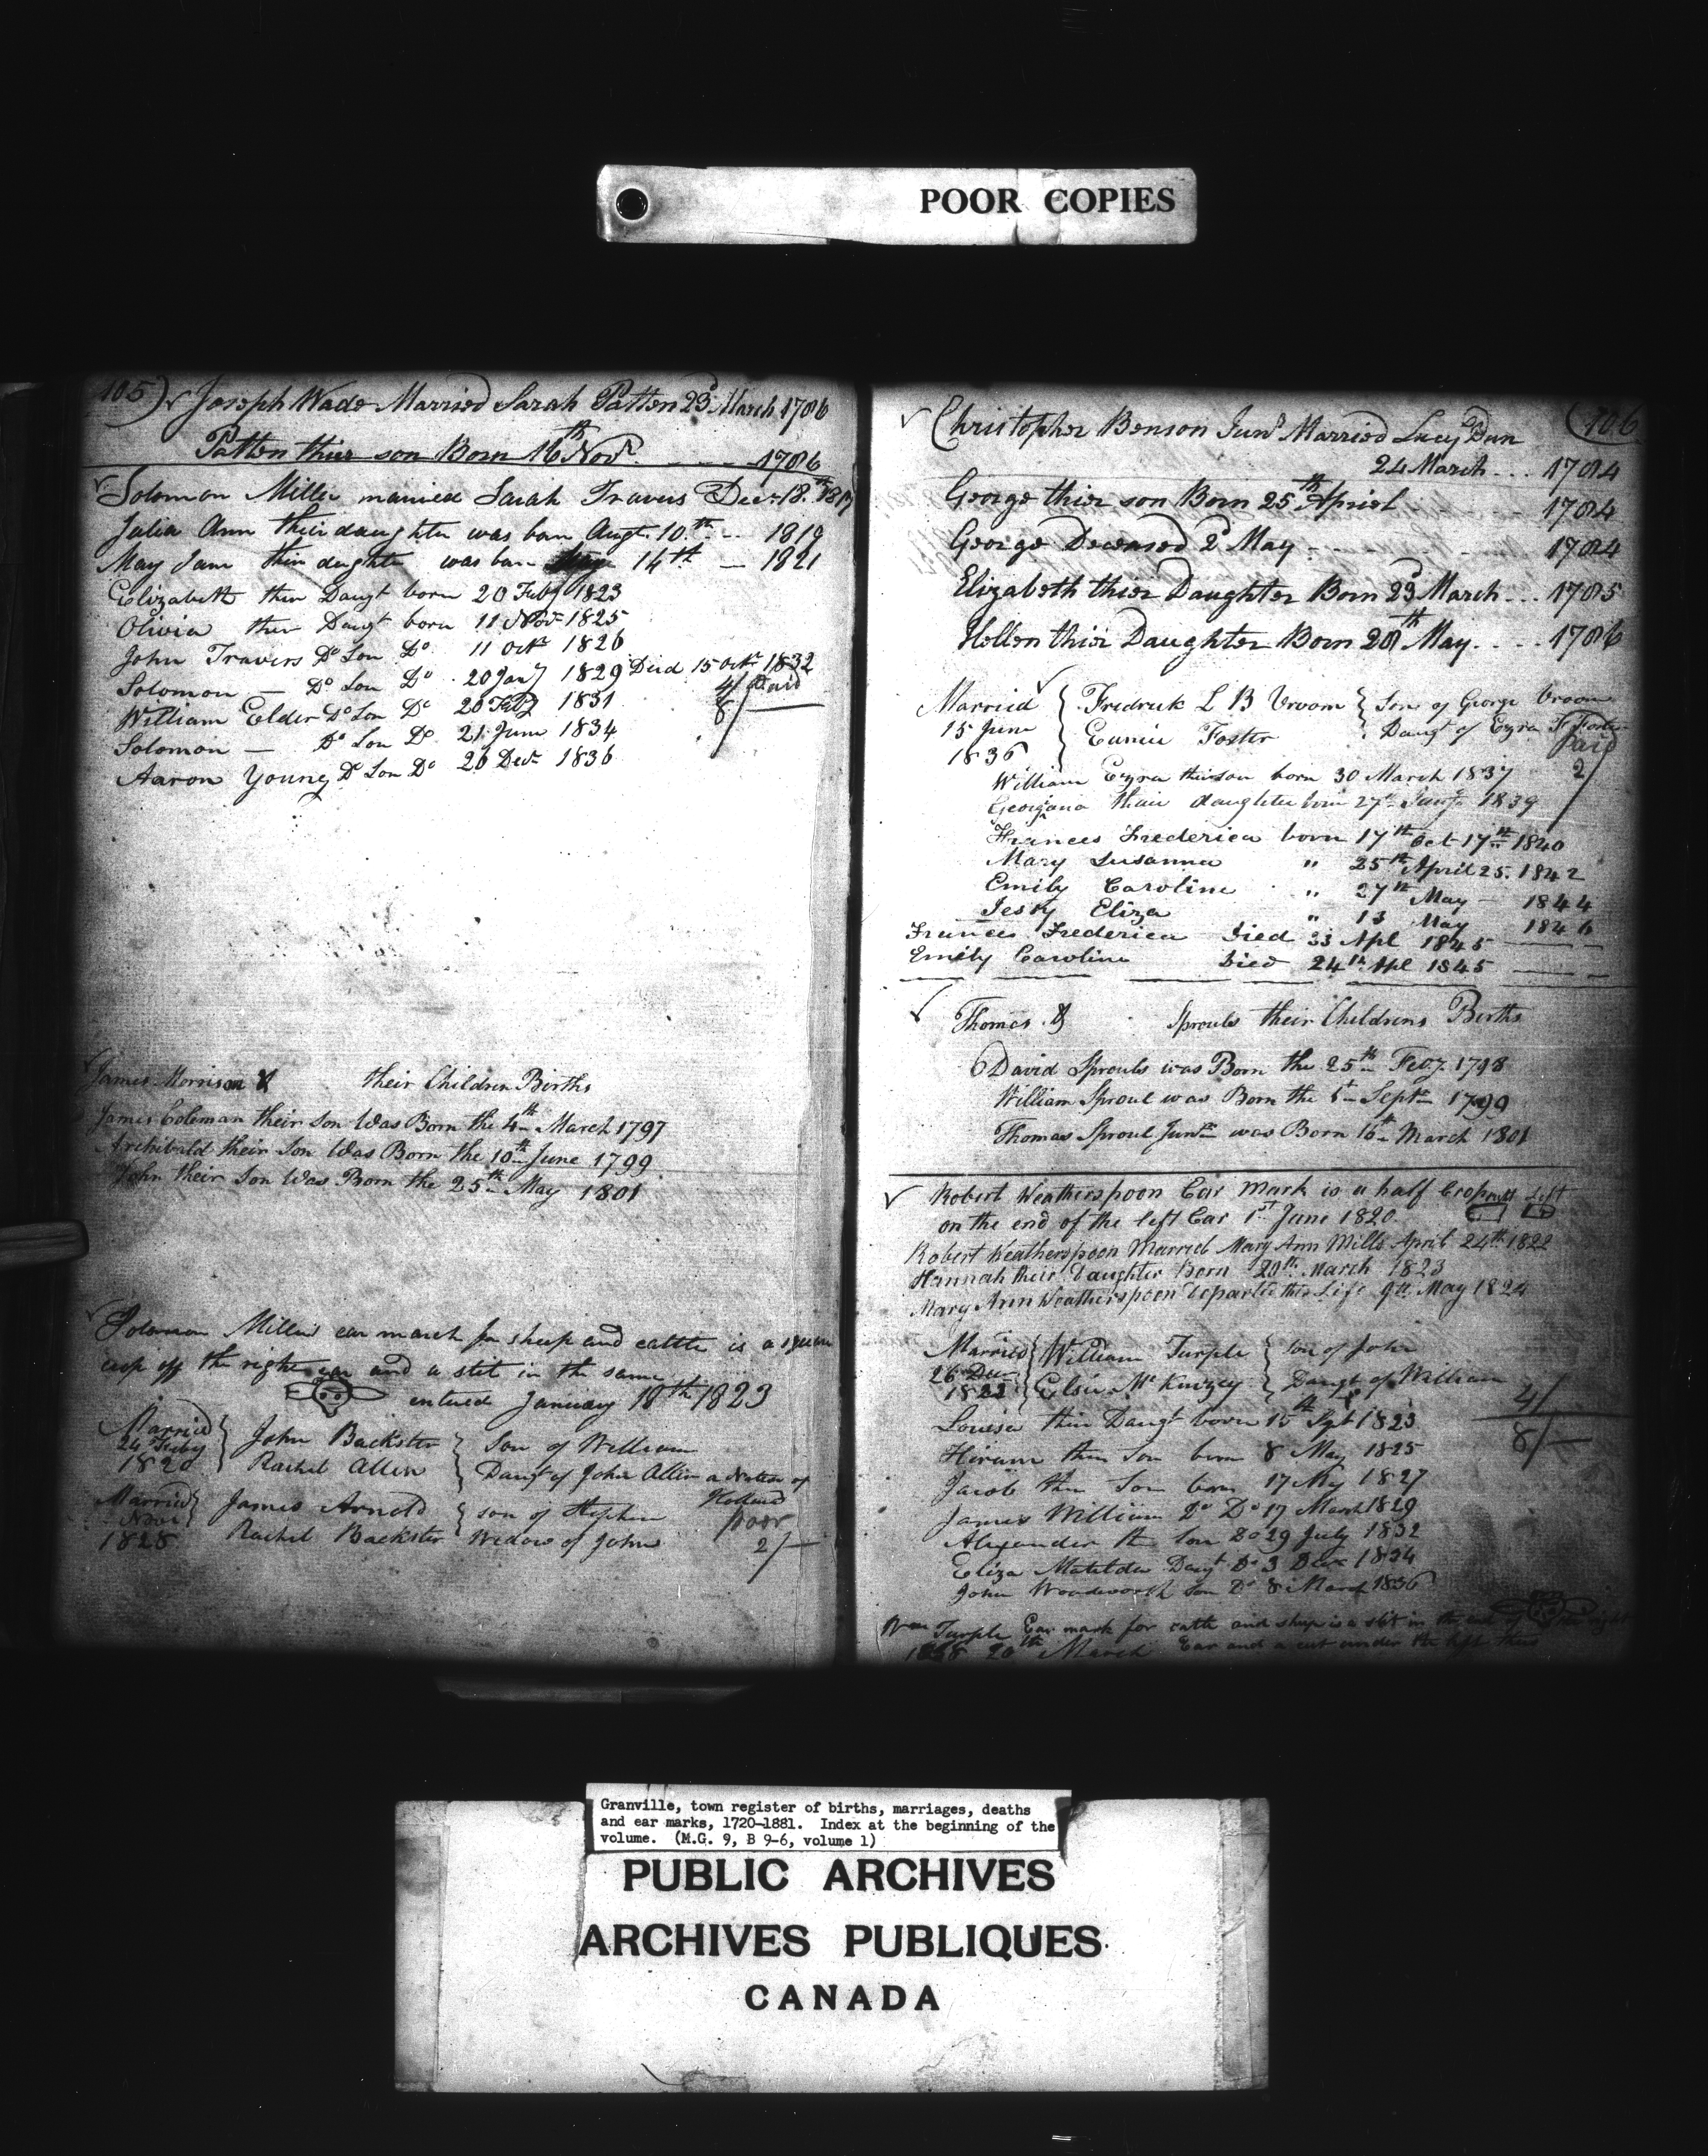 POOR COPIES
105) Joseph Wade Married Sarah Patten 23d March 1786
Patten thier son Born 16th Novr. - - - - 1786
Solomon Miller married Sarah Travers Decr 18th 1817
Julia Ann their daughter was born Augt. 10th - - 1819
Mary Jane their daughter was born 14th — 1821
Elizabeth ther Daugt born 20 Feby 1823
Olivia ther Daugt born 11 Novr 1825
John Travers Do Son Do 11 Octr 1826
Solomon — Do Son Do 20 Jany 1829 Died 15 Octr 1832
William Elder Do Son Do 20 Feby 1831
4/ Paid
8/
Solomon — Do Son Do 21 June 1834
Aaron Young Do Son Do 26 Decr 1836
James Morrison & their Children Births
James Coleman their Son Was Born the 4th March 1797
Archibald their Son Was Born the 10th June 1799
John their Son Was Born the 25th May 1801
Solomon Millers ear march for sheep and cattle is a square
crop off the right ear and a slit in the same
entered January 18th 1823
Married 24 Feby 1820 { John Backster } Son of William
Rachel Allen } Daugt of John Allen a Native of Holland
Married Novr 1828 } James Arnold } son of Stephen
Rachel Backster Widow of John
poor
2/—
106
Christopher Benson Junr Married Lucy Dun
24 March - - - 1784
George thier son Born 25th Apriel 1784
George Deceased 2d May - - - 1784
Elizabeth thier Daughter Born 23d March - - - 1785
Hellen thier Daughter Born 28th May - - - - 1786
Married 15 June 1836 { Fredrick L B Vroom } Son of George Vroom
Eunice Foster Daugt of Ezra F Foster
Paid
2/
William Ezra their son born 30 March 1837
Georgana their daughter born 27th Jany 1839
Frances Frederica born 17th Oct 17th 1840
Mary Susanna " 25th April 25. 1842
Emily Caroline " 27th May - 1844
Jessy Eliza " 13 May 1846
Frances Frederica Died 23 Apl 1845
Emily Caroline Died 24th Apl 1845
Thomas & Sprouls their Childrens Births
David Sprouls was Born the 25th Feby. 1798
William Sproul was Born the 1st Septr 1799
Thomas Sproul Junr was Born 16th March 1801
Robert Weatherspoon Ear Mark is a half Crop Left
on the end of the left Ear 1st June 1820
Robert Weatherspoon Married Mary Ann Mills April 24th 1822
Hannah their Daughter Born 20th March 1823
Mary Ann Weatherspoon Departed this Life 9th May 1824
Married 26 Decr 1822 { William Turple } son of John
Elsie Mc Kinzey } Daugt of William
4/
8/—
Louisa their Daugt born 15th Spt 1823
Hiram their Son born 8 May 1825
Jacob their Son born 17 1827
James William Do Do 17 March 1829
Alexander th Son Do 29 July 1832
Eliza Matilda Daugt Do 3 Decr 1834
John Woodworth Son Do 8 March 1836
Wm Turple Ear mark for cattle and sheep is a slit in the end of the right
20th March Ear and a cut under the left thus
Granville, town register of births, marriages, deaths
and ear marks, 1720-1881. Index at the beginning of the
volume. (M.G. 9, B 9-6, volume 1)
PUBLIC ARCHIVES
ARCHIVES PUBLIQUES
CANADA